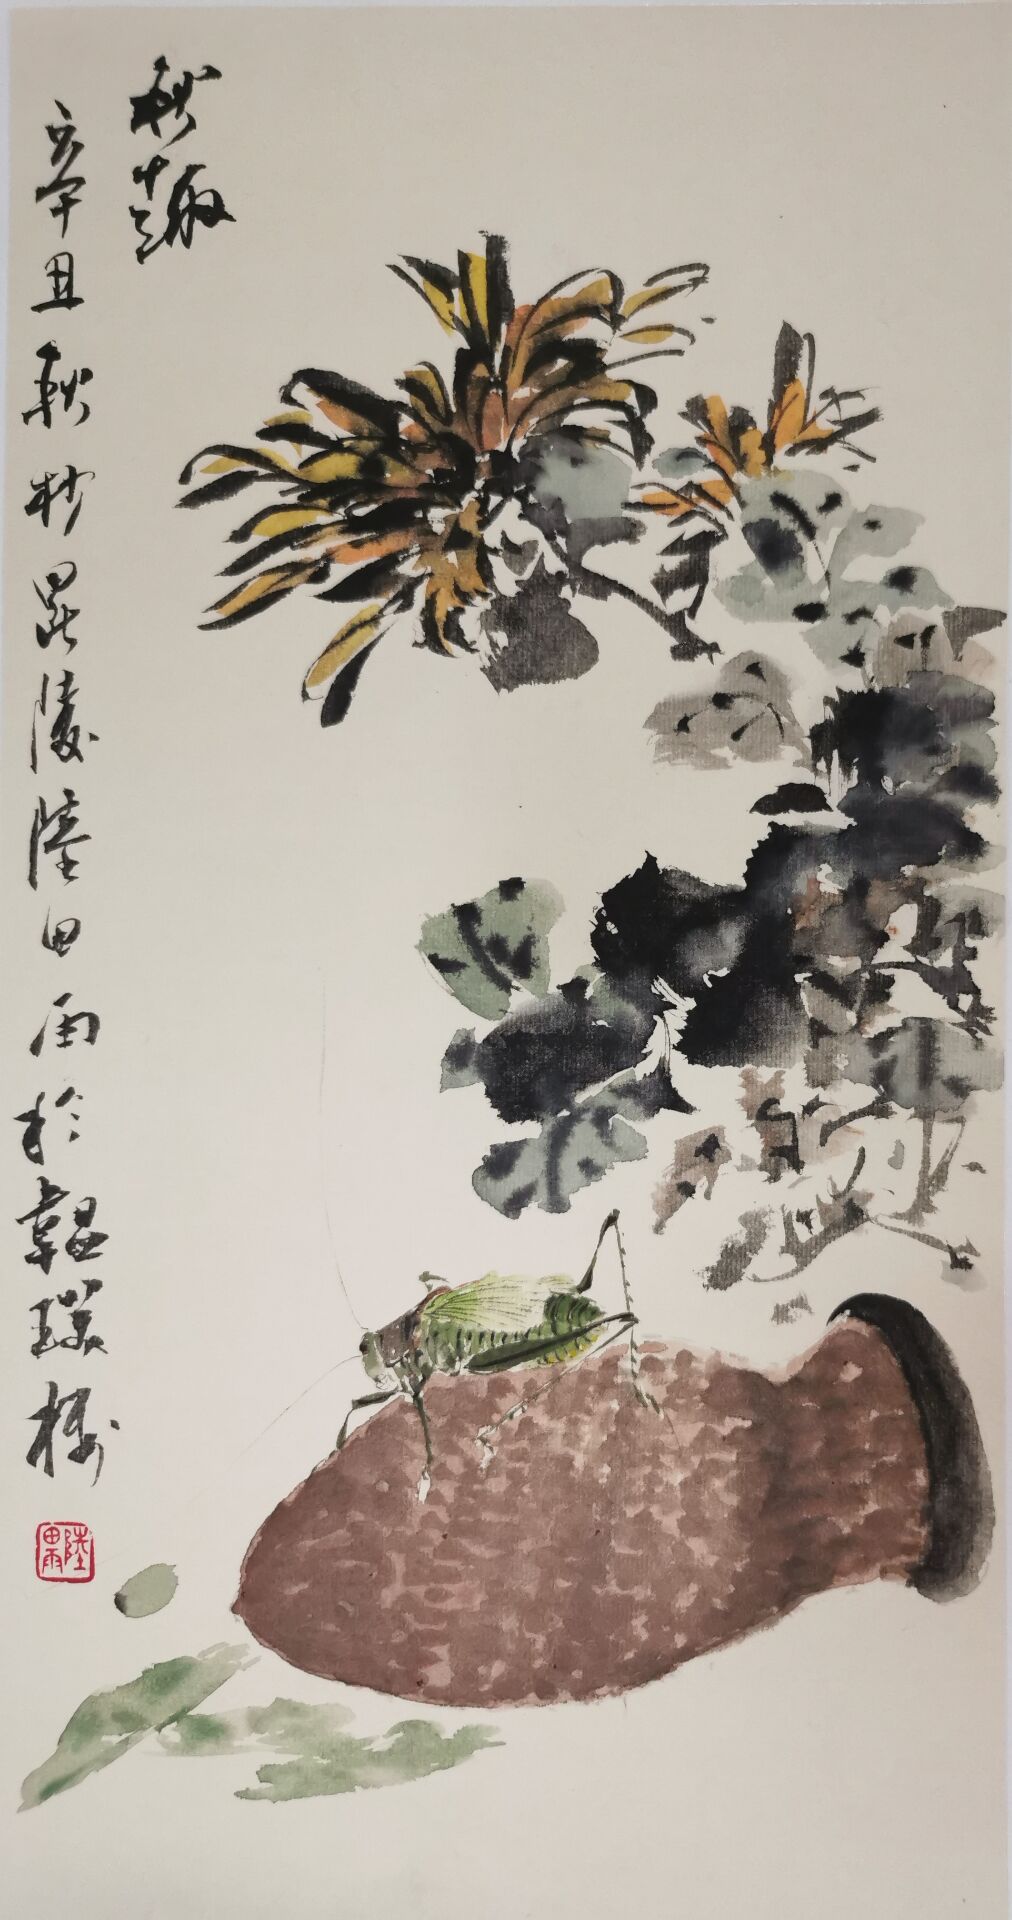 秋趣
辛丑秋杪昆陵陸田雨於韞璞樓
陸田雨